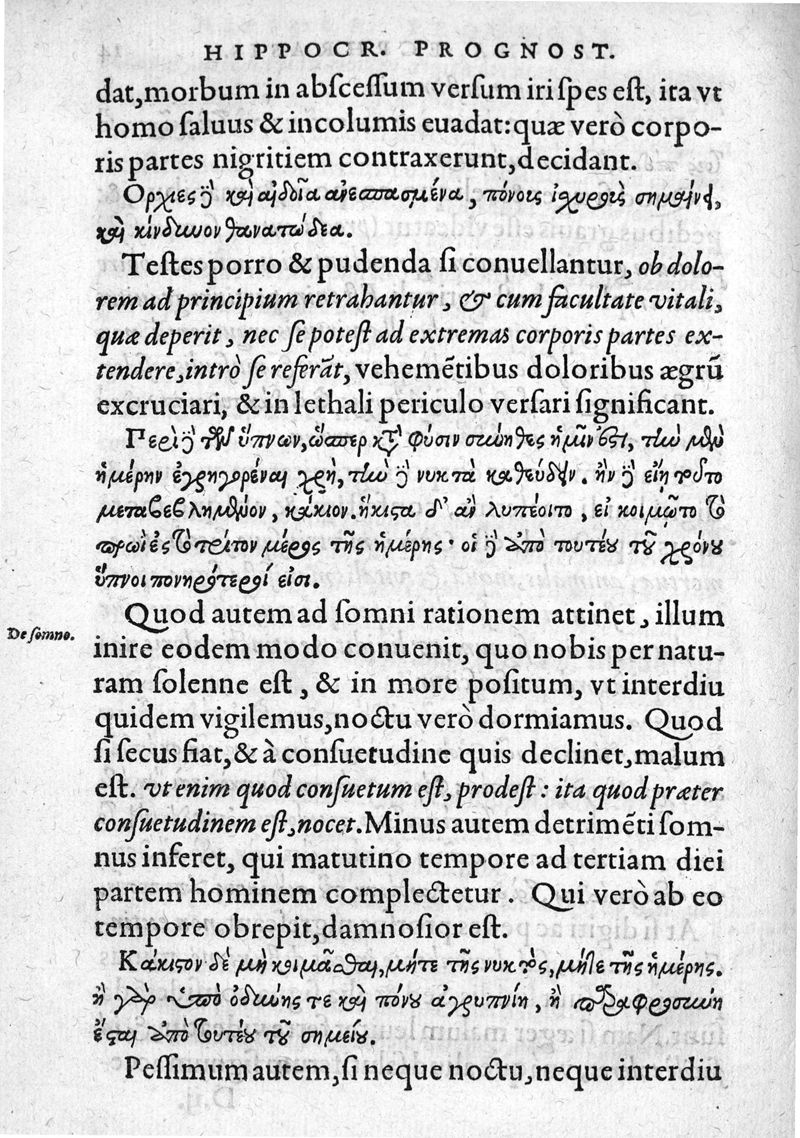 HIPPOCR. PROGNOST.
dat,morbum in abſceſſum verſum iri ſpes eſt, ita vt
homo ſaluus & incolumis euadat: quæ verò corpo-
ris partes nigritiem contraxerunt, decidant.
Ορχιες ἢ καὶ αἰδοῖα ἀνεσπασμένα, πόνους ἰσχυροὺς σημαίνει,
καὶ κίνδυνον θανατώδεα.
Teſtes porro & pudenda ſi conuellantur, ob dolo-
rem ad principium retrahantur, & cum facultate vitali,
quæ deperit, nec ſe poteſt ad extremas corporis partes ex-
tendere, intrò ſe referãt, vehemẽtibus doloribus ægrũ
excruciari, & in lethali periculo verſari ſignificant.
Περὶ δὲ τῶν ὕπνων, ὥσπερ κατὰ φύσιν σύνηθες ἡμῖν ἐστι, τὴν μὲν
ἡμέρην ἐγρηγορέναι χρὴ, τὴν δὲ νυκτὰ καθεύδειν. ἢν δὲ εἴη τοῦτο
μεταβεβλημένον, κάκιον. ἥκιστα δ' ἂν λυπέοιτο, εἰ κοιμῷτο τὸ
πρωῒ ἐς τὸ τρίτον μέρος τῆς ἡμέρης· οἱ δὲ ἀπὸ τουτέου τοῦ χρόνου
ὕπνοι πονηρότεροί εἰσι.
De ſomno.
Quod autem ad ſomni rationem attinet, illum
inire eodem modo conuenit, quo nobis per natu-
ram ſolenne eſt, & in more poſitum, vt interdiu
quidem vigilemus, noctu verò dormiamus. Quod
ſi ſecus fiat, & à conſuetudine quis declinet, malum
eſt. vt enim quod conſuetum eſt, prodeſt: ita quod præter
conſuetudinem eſt, nocet. Minus autem detrimẽti ſom-
nus inferet, qui matutino tempore ad tertiam diei
partem hominem complectetur. Qui verò ab eo
tempore obrepit, damnoſior eſt.
Κάκιστον δὲ μὴ κοιμᾶσθαι, μήτε τῆς νυκτὸς, μήτε τῆς ἡμέρης.
ἢ γὰρ ὑπὸ ὀδύνης τε καὶ πόνου ἀγρυπνίη, ἢ παραφροσύνη
ἔσται ἀπὸ τουτέου τοῦ σημείου.
Peſſimum autem, ſi neque noctu, neque interdiu